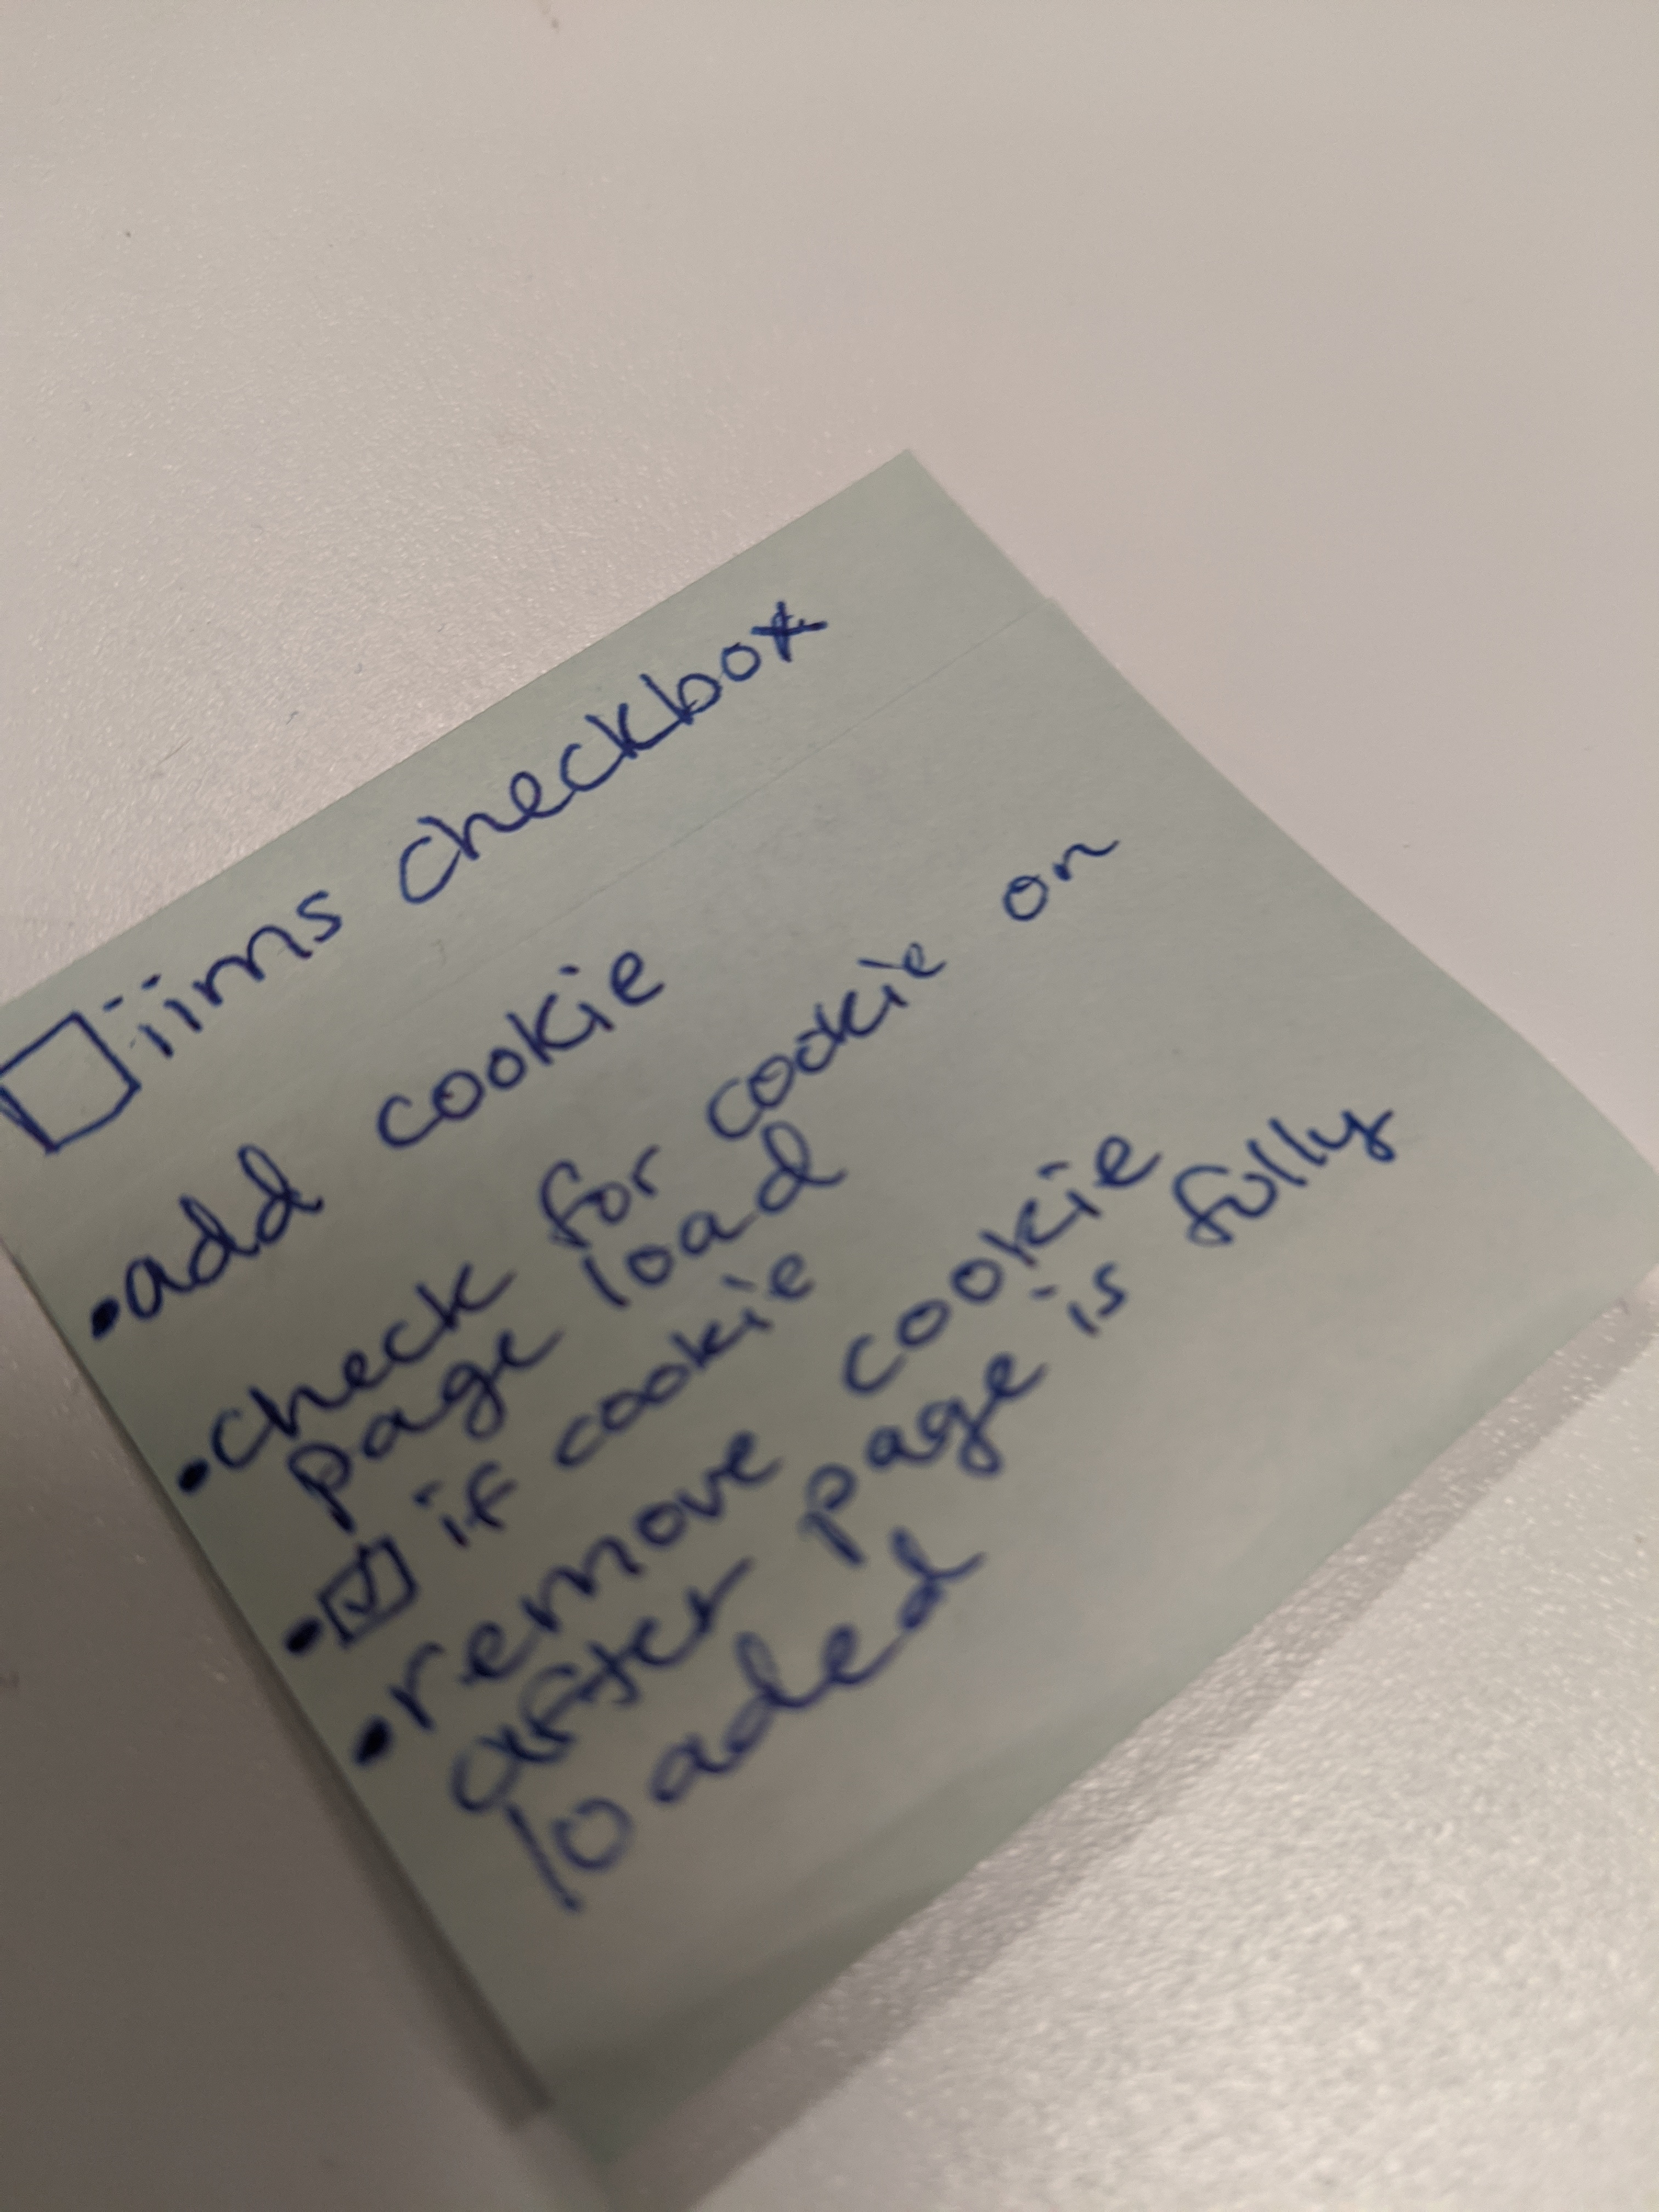 ☐ iims checkbox
•add cookie
•check for cookie on
page load
•☑ if cookie
•remove cookie
after page is fully
loaded